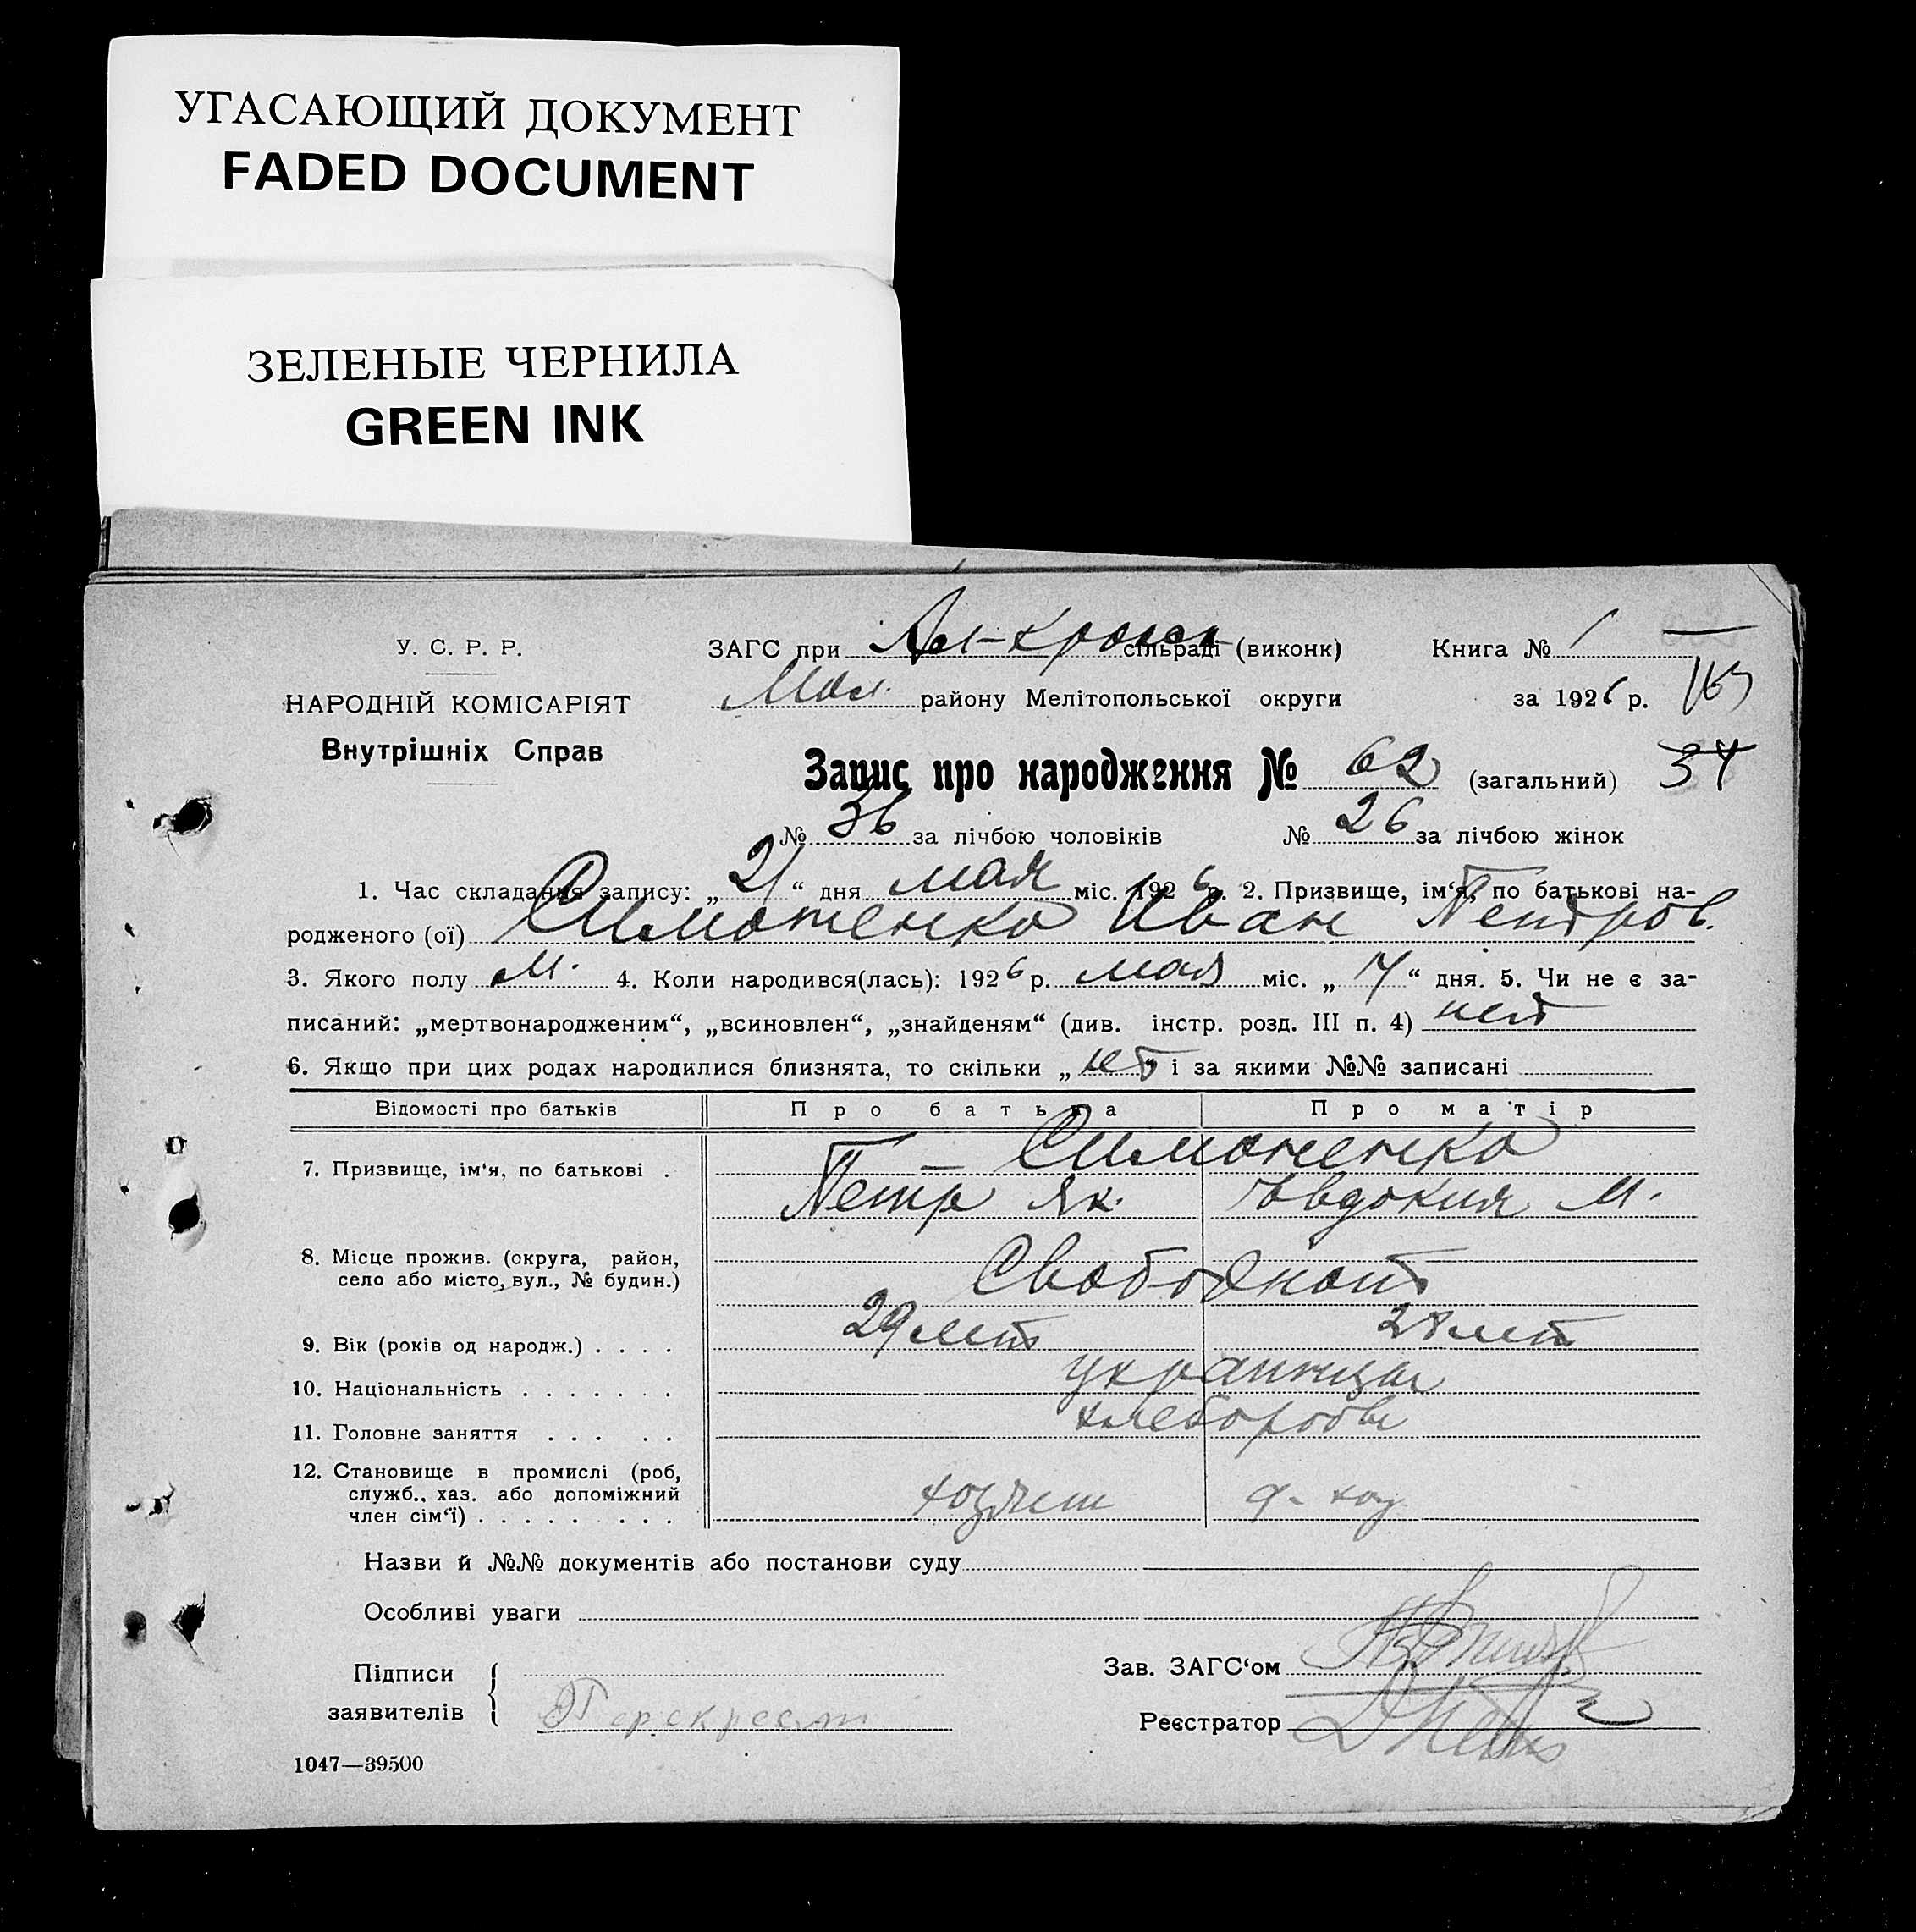 УГАСАЮЩИЙ ДОКУМЕНТ
FADED DOCUMENT
ЗЕЛЕНЫЕ ЧЕРНИЛА
GREEN INK
У. С. Р. Р.
НАРОДНІЙ КОМІСАРІЯТ
Внутрішніх Справ
ЗАГС при сільраді (виконк) Книга № 1
Мол. району Мелітопольської округи за 1926 р.
Запис про народження № 62 (загальний) 34
№ 36 за лічбою чоловіків № 26 за лічбою жінок
1. Час складання запису: „21“ дня мая міс. 1926 р. 2. Призвище, ім‘я, по батькові на-
родженого (ої) Симоненко Иван Петров.
3. Якого полу м. 4. Коли народився(лась): 1926 р. мая міс. „7“ дня. 5. Чи не є за-
писаний: „мертвонародженим“, „всиновлен“, „знайденям“ (див. інстр. розд. III п. 4) нет
6. Якщо при цих родах народилися близнята, то скільки „нет“ і за якими №№ записані
Відомості про батьків Про батька Про матір
7. Призвище, ім‘я, по батькові . – Симоненко
Петр Як. Евдокия М.
8. Місце прожив. (округа, район,
село або місто, вул., № будин.)
9. Вік (років од народж.) . . . . 29 лет 28 лет
10. Національність . . . . . . . украинцы
11. Головне заняття . . . . . хлеборобы
12. Становище в промислі (роб,
служб., хаз. або допоміжний
член сім‘ї) . . . . . . . . .
Назви й №№ документів або постанови суду
Особливі уваги
Підписи
заявителів
Зав. ЗАГС‘ом
Реєстратор
1047—39500